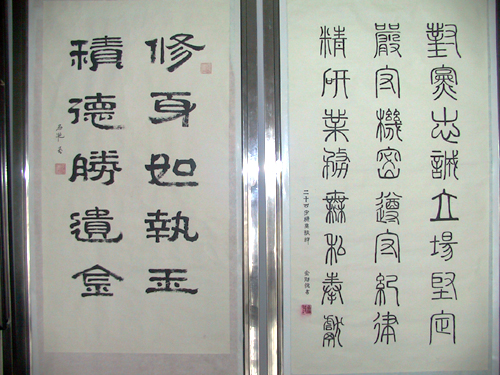 修身如執玉
積德勝遺金
對黨忠誠立場堅定
嚴守機密遵守紀律
精研業務無私奉獻
二十四字